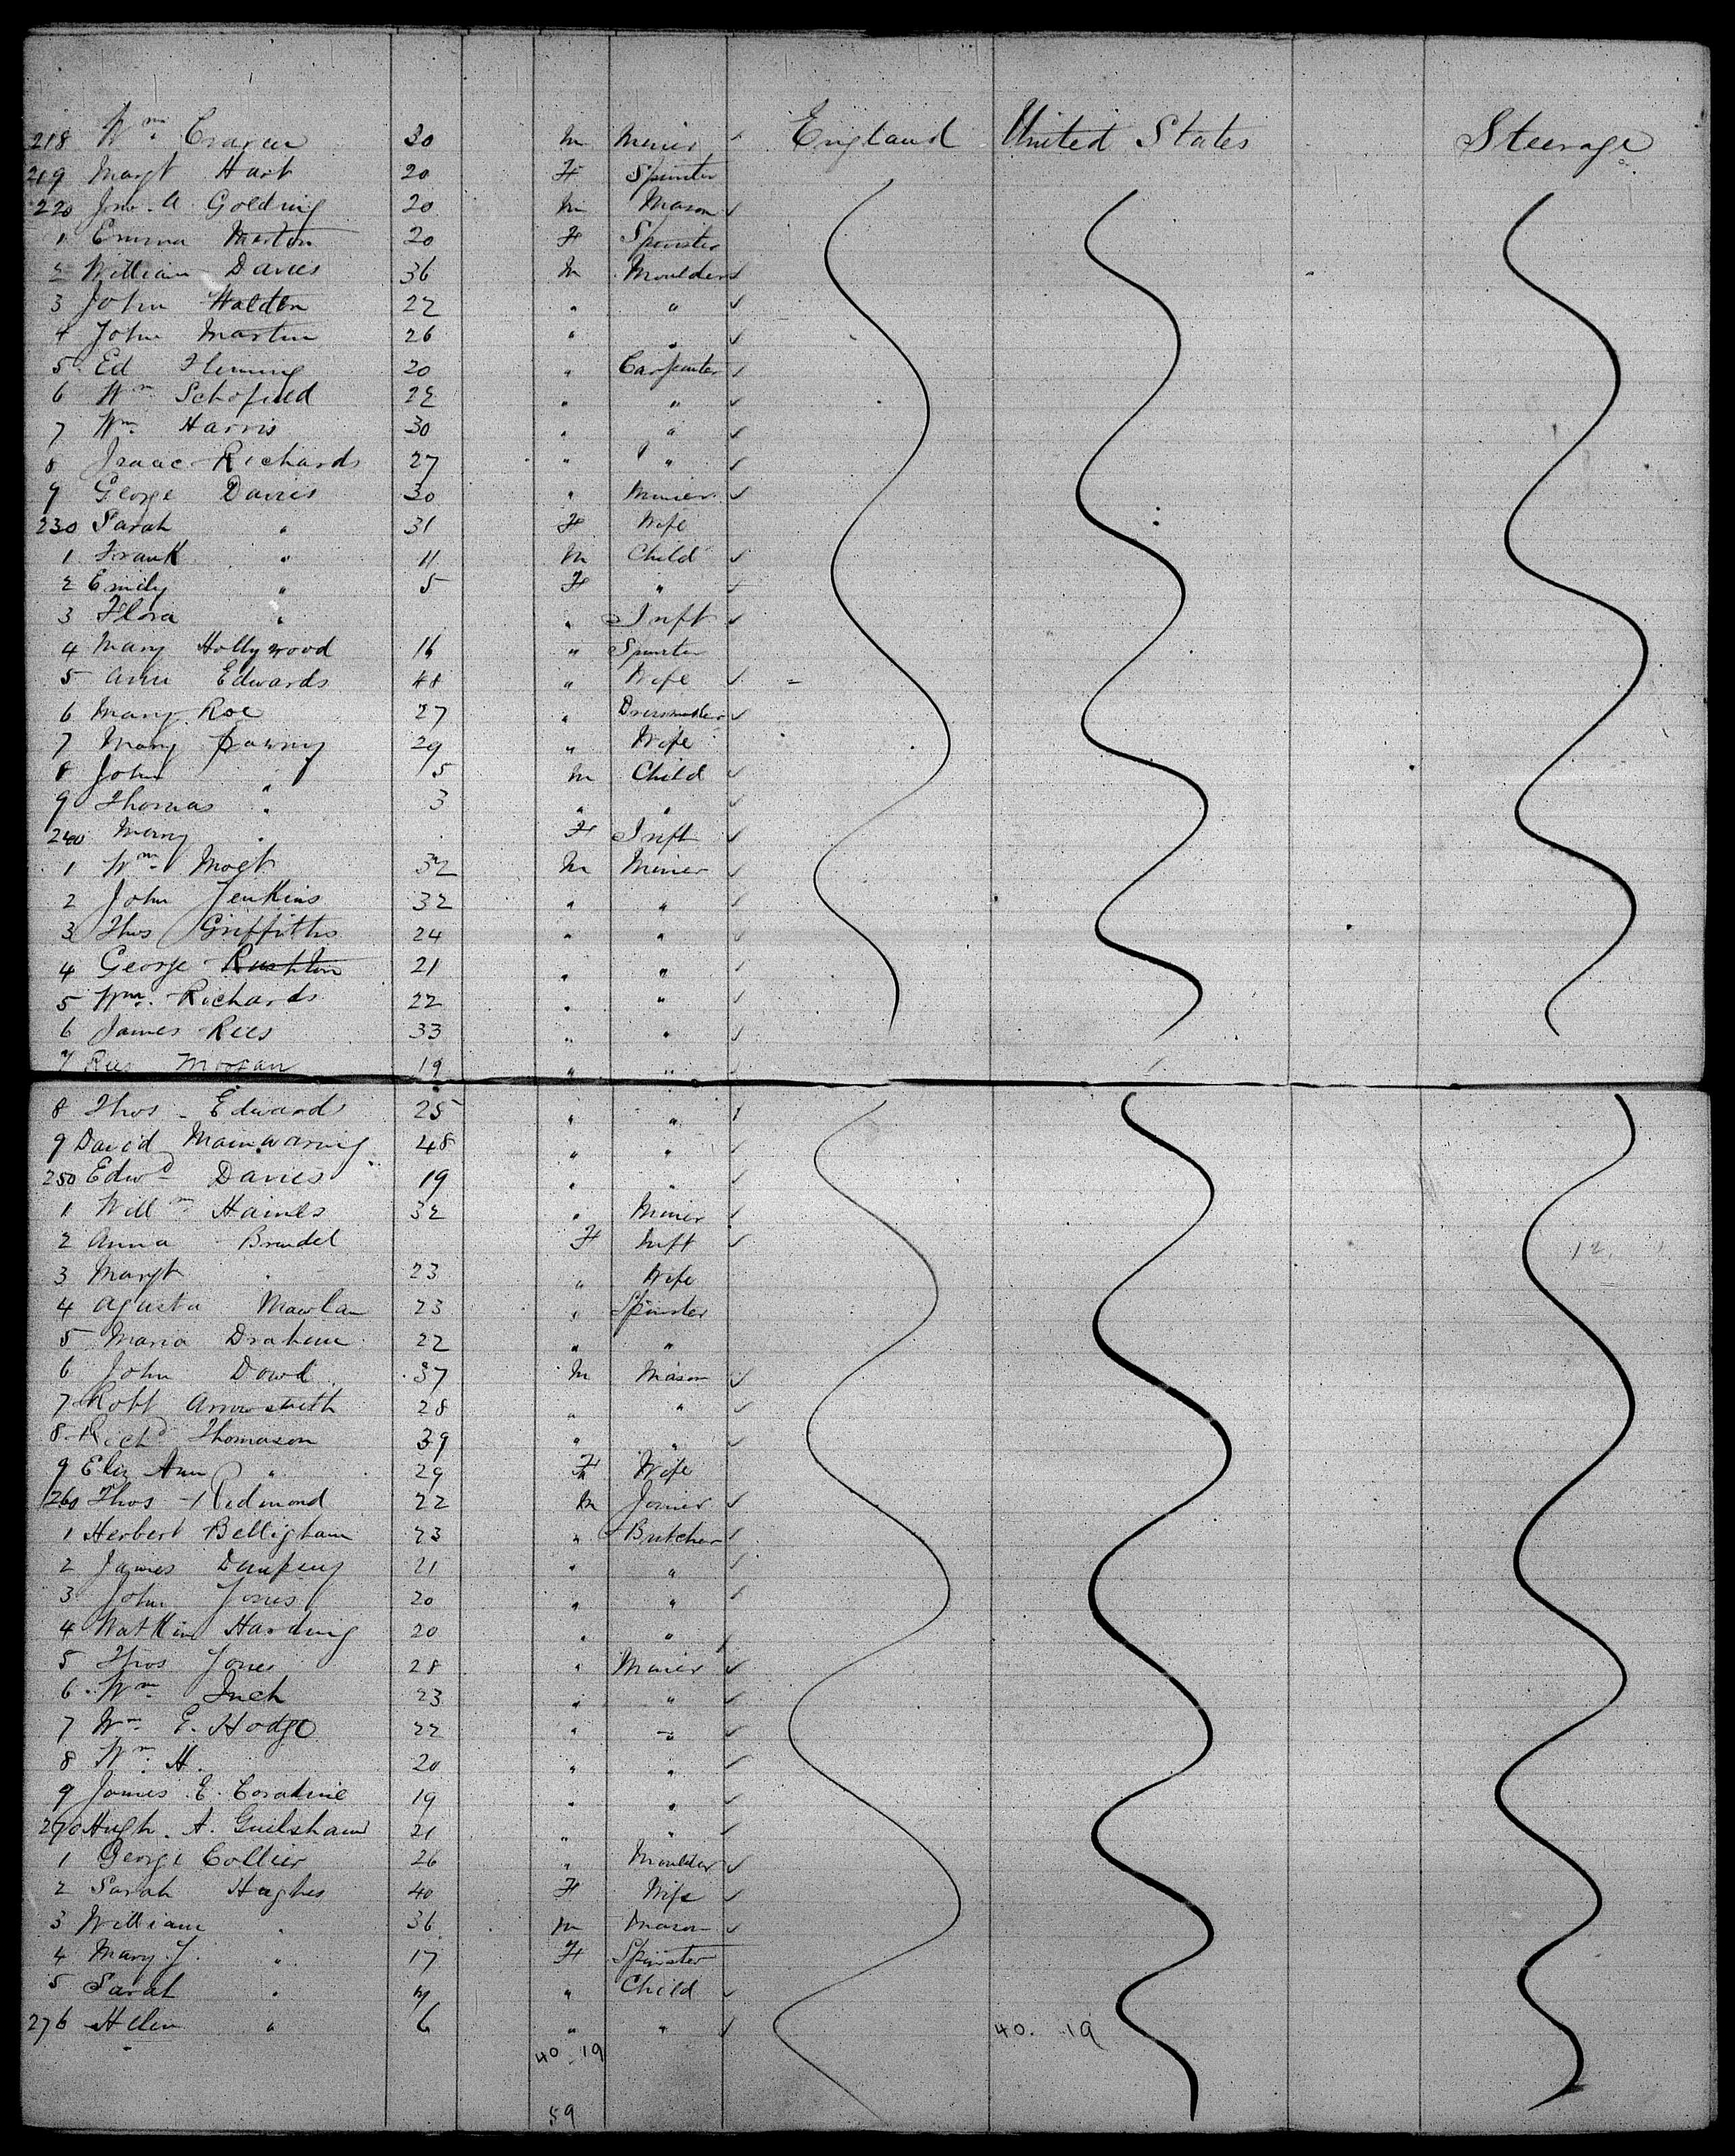 218 Wm Craven 30 M Miner ✓ England United States Steerage
219 Margt Hart 20 F Spinster
220 Jno. A. Golding 20 M Mason ✓
1 Emma 20 F Spinster
2 William Davies 36 M Moulder ✓
3 John Walden 22 " " ✓
4 John Martin 26 " " ✓
5 Ed Fleming 20 " Carpenter ✓
6 Wm Schofield 22 " " ✓
7 Wm Harris 30 " " ✓
8 Isaac Richards 27 " " ✓
9 George Davies 30 " Miner ✓
230 Sarah " 31 F Wife
1 Frank " 11 M Child ✓
2 Emily " 5 F " ✓
3 Flora " " Inft ✓
4 Mary Hollywood 16 " Spinster
5 Ann Edwards 48 " Wife ✓
6 Mary Roe 27 " Dressmaker ✓
7 Mary 29 " Wife
8 John " 5 M Child ✓
9 Thomas " 3 " " ✓
240 Mary " F Inft ✓
1 Wm 32 M Miner ✓
2 John Jenkins 32 " " ✓
3 Thos Griffiths 24 " " ✓
4 George Rushton 21 " " ✓
5 Wm. Richards 22 " " ✓
6 James Rees 33 " " ✓
7 Rees Morgan 19 " " ✓
8 Thos Edwards 25 " " ✓
9 David Mainwaring 48 " " ✓
250 Edwd Davies 19 " " ✓
1 Willm Haines 32 " Miner ✓
2 Anna Brendel F Inft ✓
3 Margt " 23 " Wife
4 Agusta 23 " Spinster
5 Maria 22 " "
6 John Dowd 37 M Mason ✓
7 Robt Arrowsmith 28 " " ✓
8 Richd Thomason 39 " " ✓
9 Eliz Ann " 29 F Wife
260 Thos Redmond 22 M Joiner ✓
1 Herbert Belligham 23 " Butcher ✓
2 James 21 " " ✓
3 John Jones 20 " " ✓
4 Watkin Harding 20 " " ✓
5 Thos Jones 28 " Miner ✓
6 Wm Inch 23 " " ✓
7 Wm E. Hodge 22 " " ✓
8 Wm H. 20 " " ✓
9 James E. 19 " " ✓
270 Hugh A. 21 " " ✓
1 George Collier 26 " Moulder ✓
2 Sarah Hughes 40 F Wife ✓
3 William " 36 M Mason ✓
4 Mary J. " 17 F Spinster
5 Sarah " " Child ✓
276 Helen " 6 " " ✓
40. 19
40 19
59